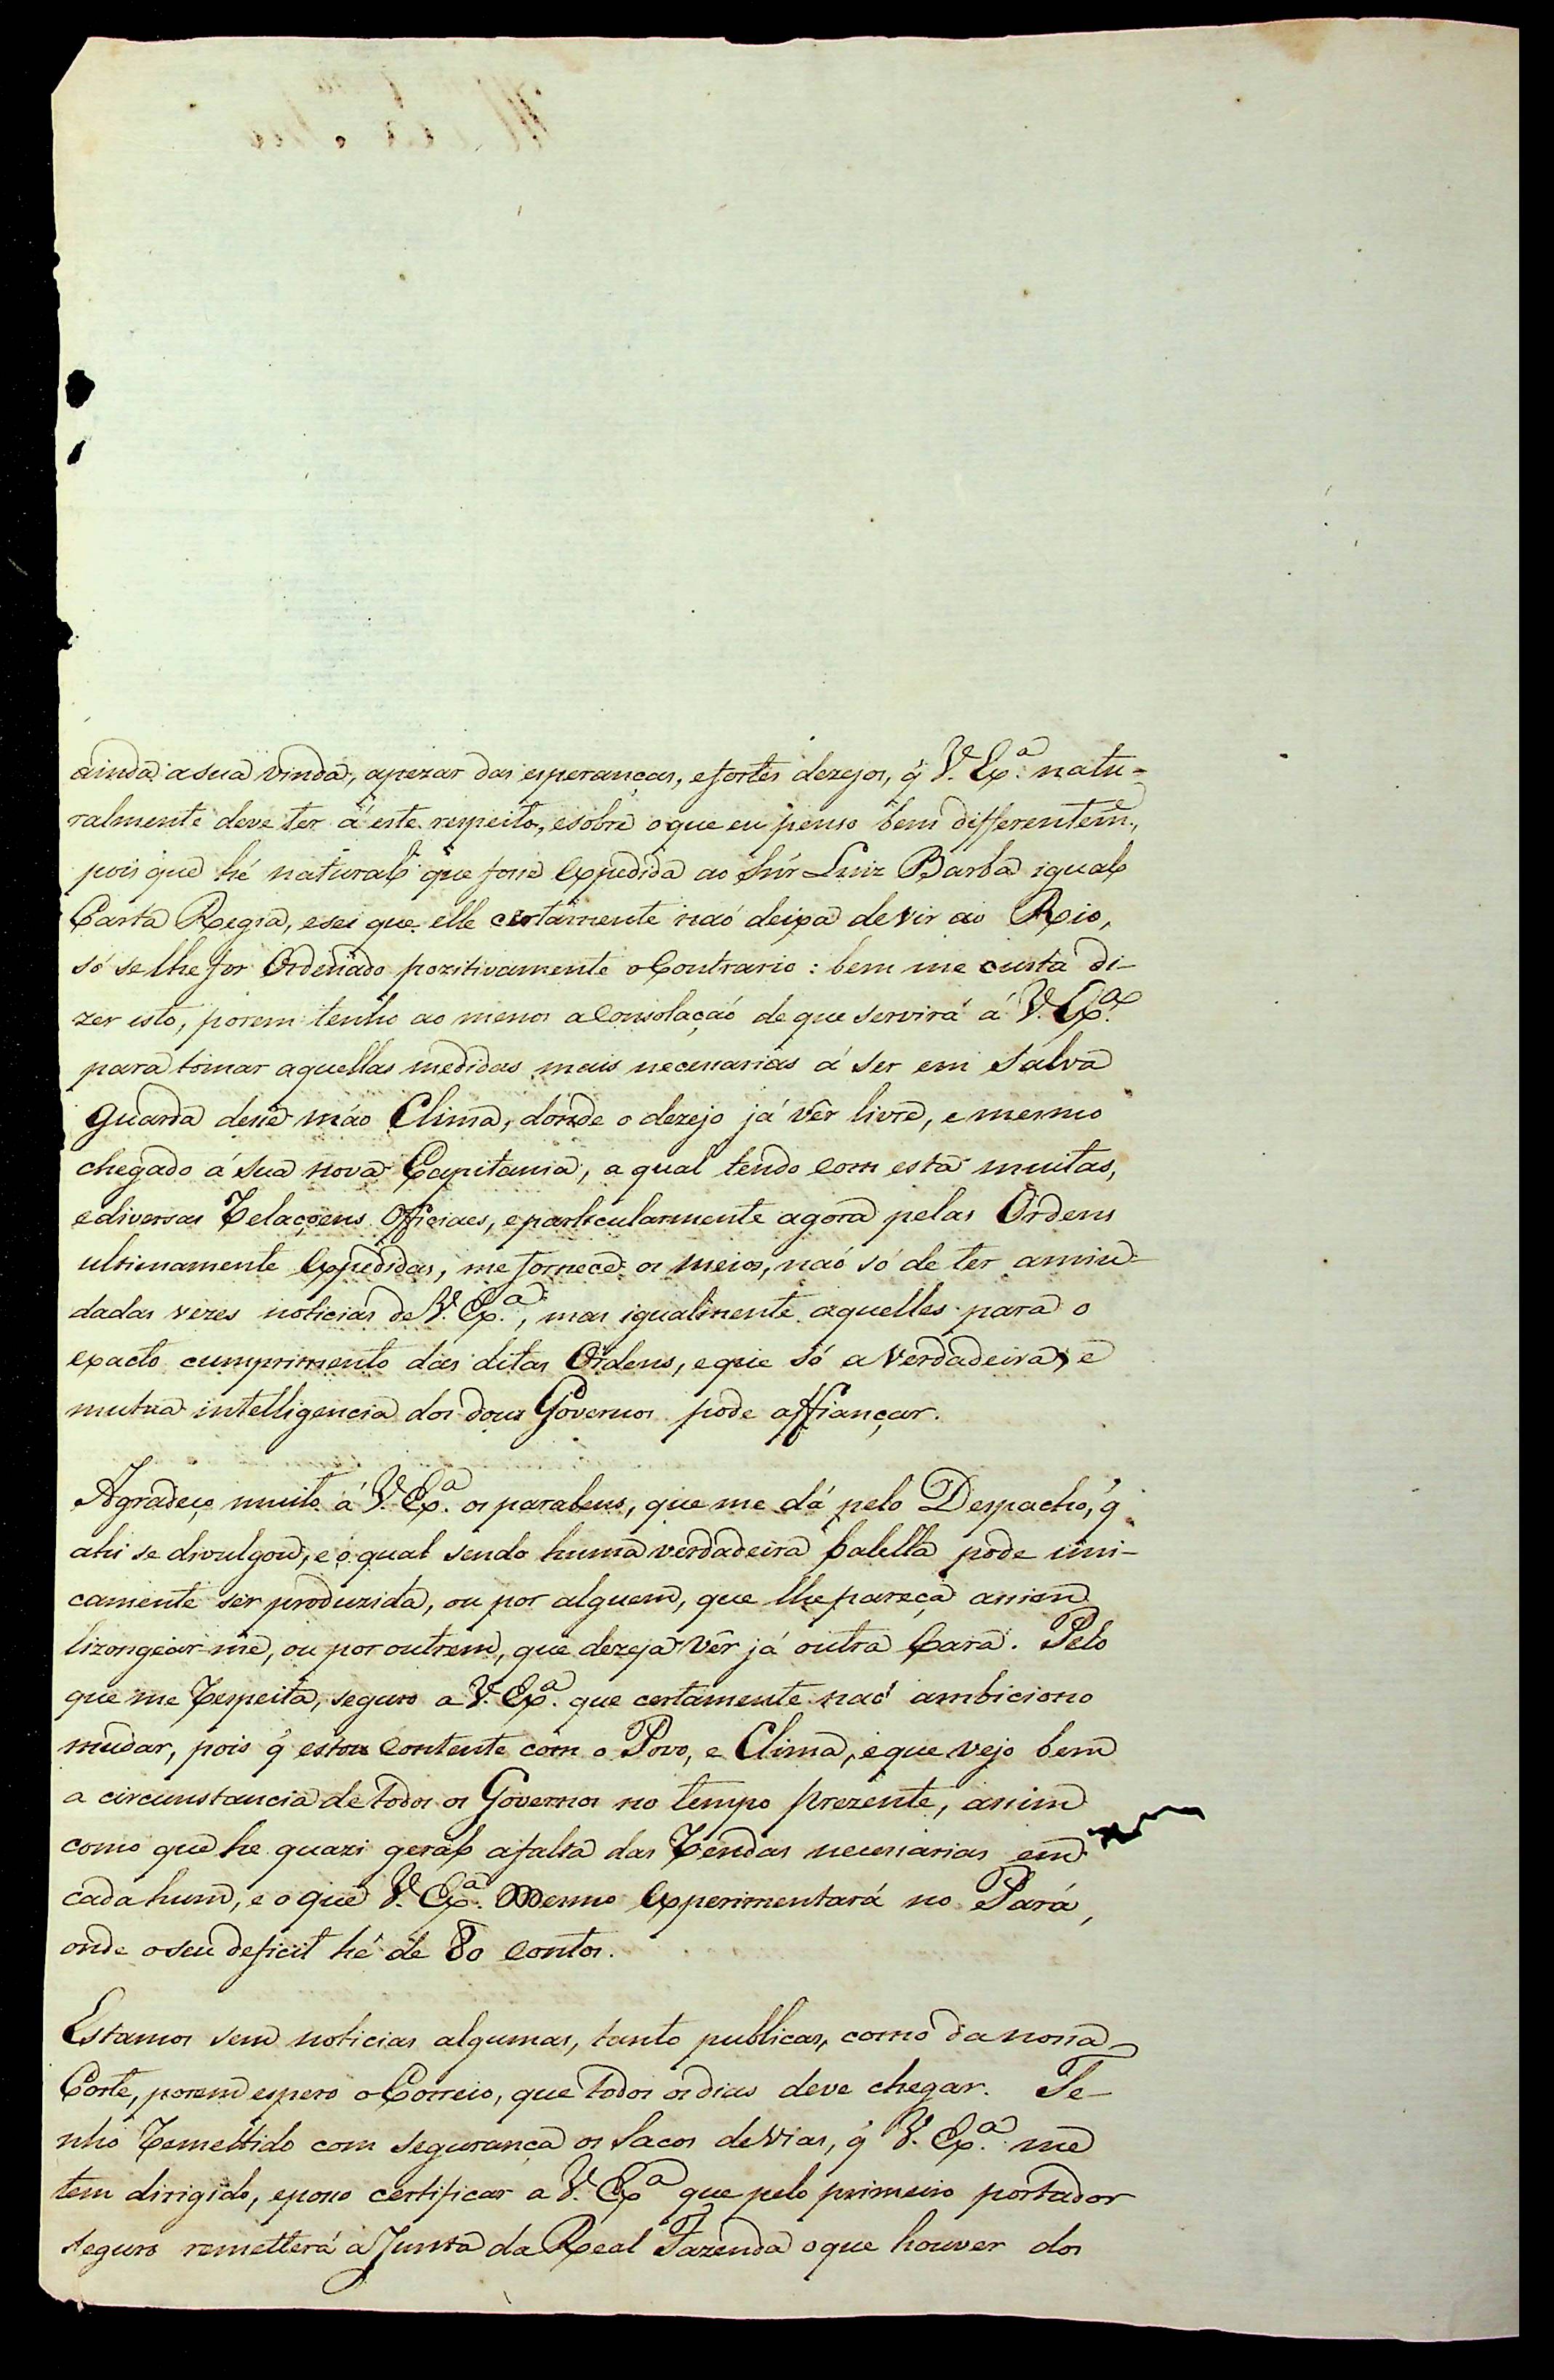 ainda a sua vinda, apezar das esperanças, e fortes dezejos, q̃ V. Ex.ª natu-
ralmente deve ter á este respeito, e sobre o que eu penso bem differentem.e,
pois que hé natural que fosse expedida ao Snr Luiz Barba igual
Carta Regia, e sei que elle certamente naõ deixa de vir ao Rio,
só se lhe for Ordenado pozitivamente o Contrario : bem me custa di-
zer isto, porem tenho ao menos a Consolaçaõ de que servirá á V. Ex.ª
para tomar aquellas medidas mais necessarias á ser em salva
guarda desse máo Clima, donde o dezejo já vêr livre, e mesmo
chegado á sua nova Capitania, a qual tendo com esta muitas,
e diversas Relaçoens Officiaes, e particularmente agora pelas Ordens
ultimamente expedidas, me fornece os meios, naõ só de ter amiu-
dadas vezes noticias de V. Ex.ª, mas igualmente aquelles para o
exacto cumprimento das ditas Ordens, e que só a verdadeira, e
mutua intelligencia dos dous Governos pode affiançar.
Agradeço muito á V. Ex.ª os parabens, que me dá pelo Despacho, q̃
ahi se divulgou, e o qual sendo huma verdadeira balella pode uni-
camente ser produzida, ou por alguem, que lhe pareça assim
lizongear-me, ou por outrem, que dezeja vêr já outra Cara. Pelo
que me Respeita, seguro a V. Ex.ª que certamente naõ ambiciono
mudar, pois q̃ estou Contente com o Povo, e Clima, e que vejo bem
a circunstancia de todos os Governos no tempo prezente, assim
como que he quazi geral a falta das Rendas necessarias em
cada hum, e o que V. Ex.ª Mesmo experimentará no Pará,
onde o seu deficit hé de 80 Contos.
Estamos sem noticias algumas, tanto publicas, como da nossa
Corte, porem espero o Correio, que todos os dias deve chegar. Te-
nho Remettido com segurança os sacos de vias, q̃ V. Ex.ª me
tem dirigido, e posso certificar a V. Ex.ª que pelo primeiro portador
seguro remetterá a Junta da Real Fazenda o que houver dos